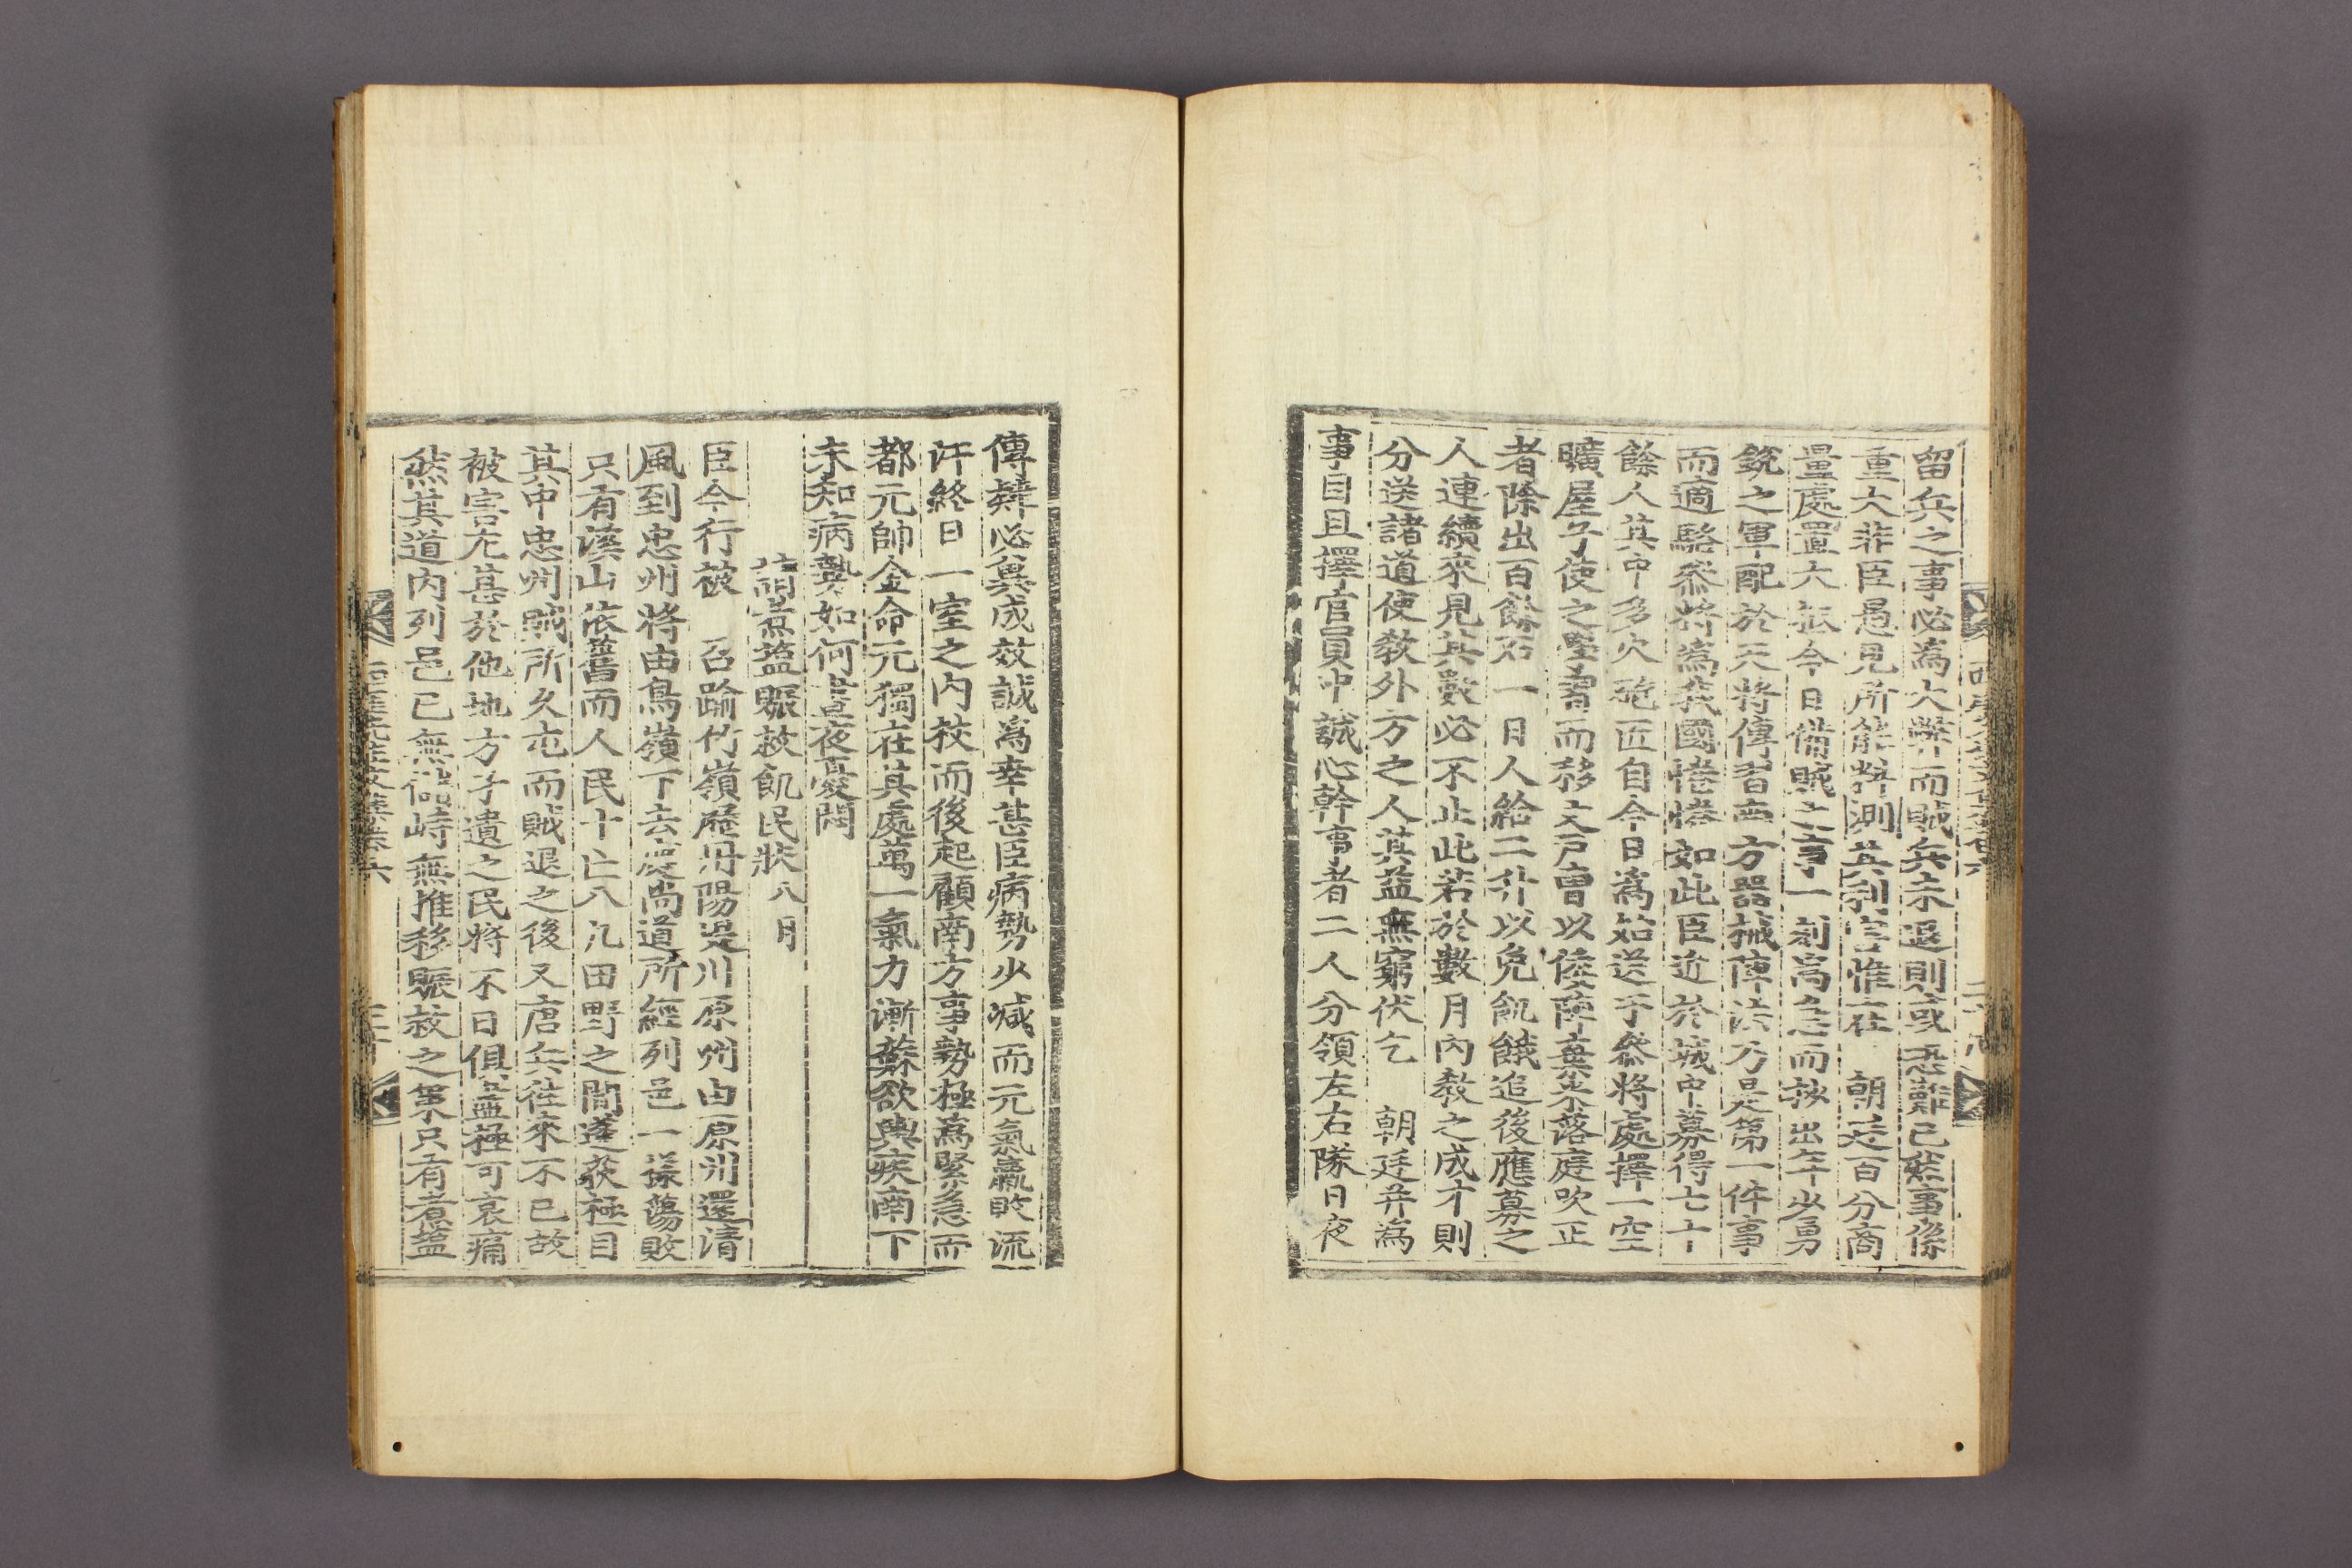 留兵之事必爲大弊而賊兵未退則或恐難已然事係
重大非臣愚見所能料測其利害惟在 朝廷百分商
量處置大抵今日備賊之事一刻爲急而抄出年少勇
銳之軍配於天將傳習南方器械陣法乃是第一件事
而適駱參將爲我國惓惓如此臣近於城中募得七十
餘人其中多火砲匠自今日爲始送于參將處擇一空
曠屋子使之學習而移文戶曹以倭陣棄米落庭吹正
者除出百餘石一月人給二升以免飢餓追後應募之
人連續來見其數必不止此若於數月內敎之成才則
分送諸道使敎外方之人其益無窮伏乞 朝廷并爲
事目且擇官員中誠心幹事者二人分領左右隊日夜
傳肄必冀成效誠爲幸甚臣病勢少減而元氣羸敗流
汗終日一室之內扶而後起顧南方事勢極爲緊急而
都元帥金命元獨在其處萬一氣力漸蘇欲輿疾南下
未知病勢如何晝夜憂悶
請煮鹽賑救飢民狀八月
臣今行被 召踰竹嶺歷丹陽堤川原州由原州還淸
風到忠州將由鳥嶺下去慶尙道所經列邑一樣蕩敗
只有溪山依舊而人民十亡八九田野之間蓬荻極目
其中忠州賊所久屯而賊退之後又唐兵往來不已故
被害尤甚於他地方孑遺之民將不日俱盡極可哀痛
然其道內列邑已無儲峙無推移賑救之策只有煮鹽